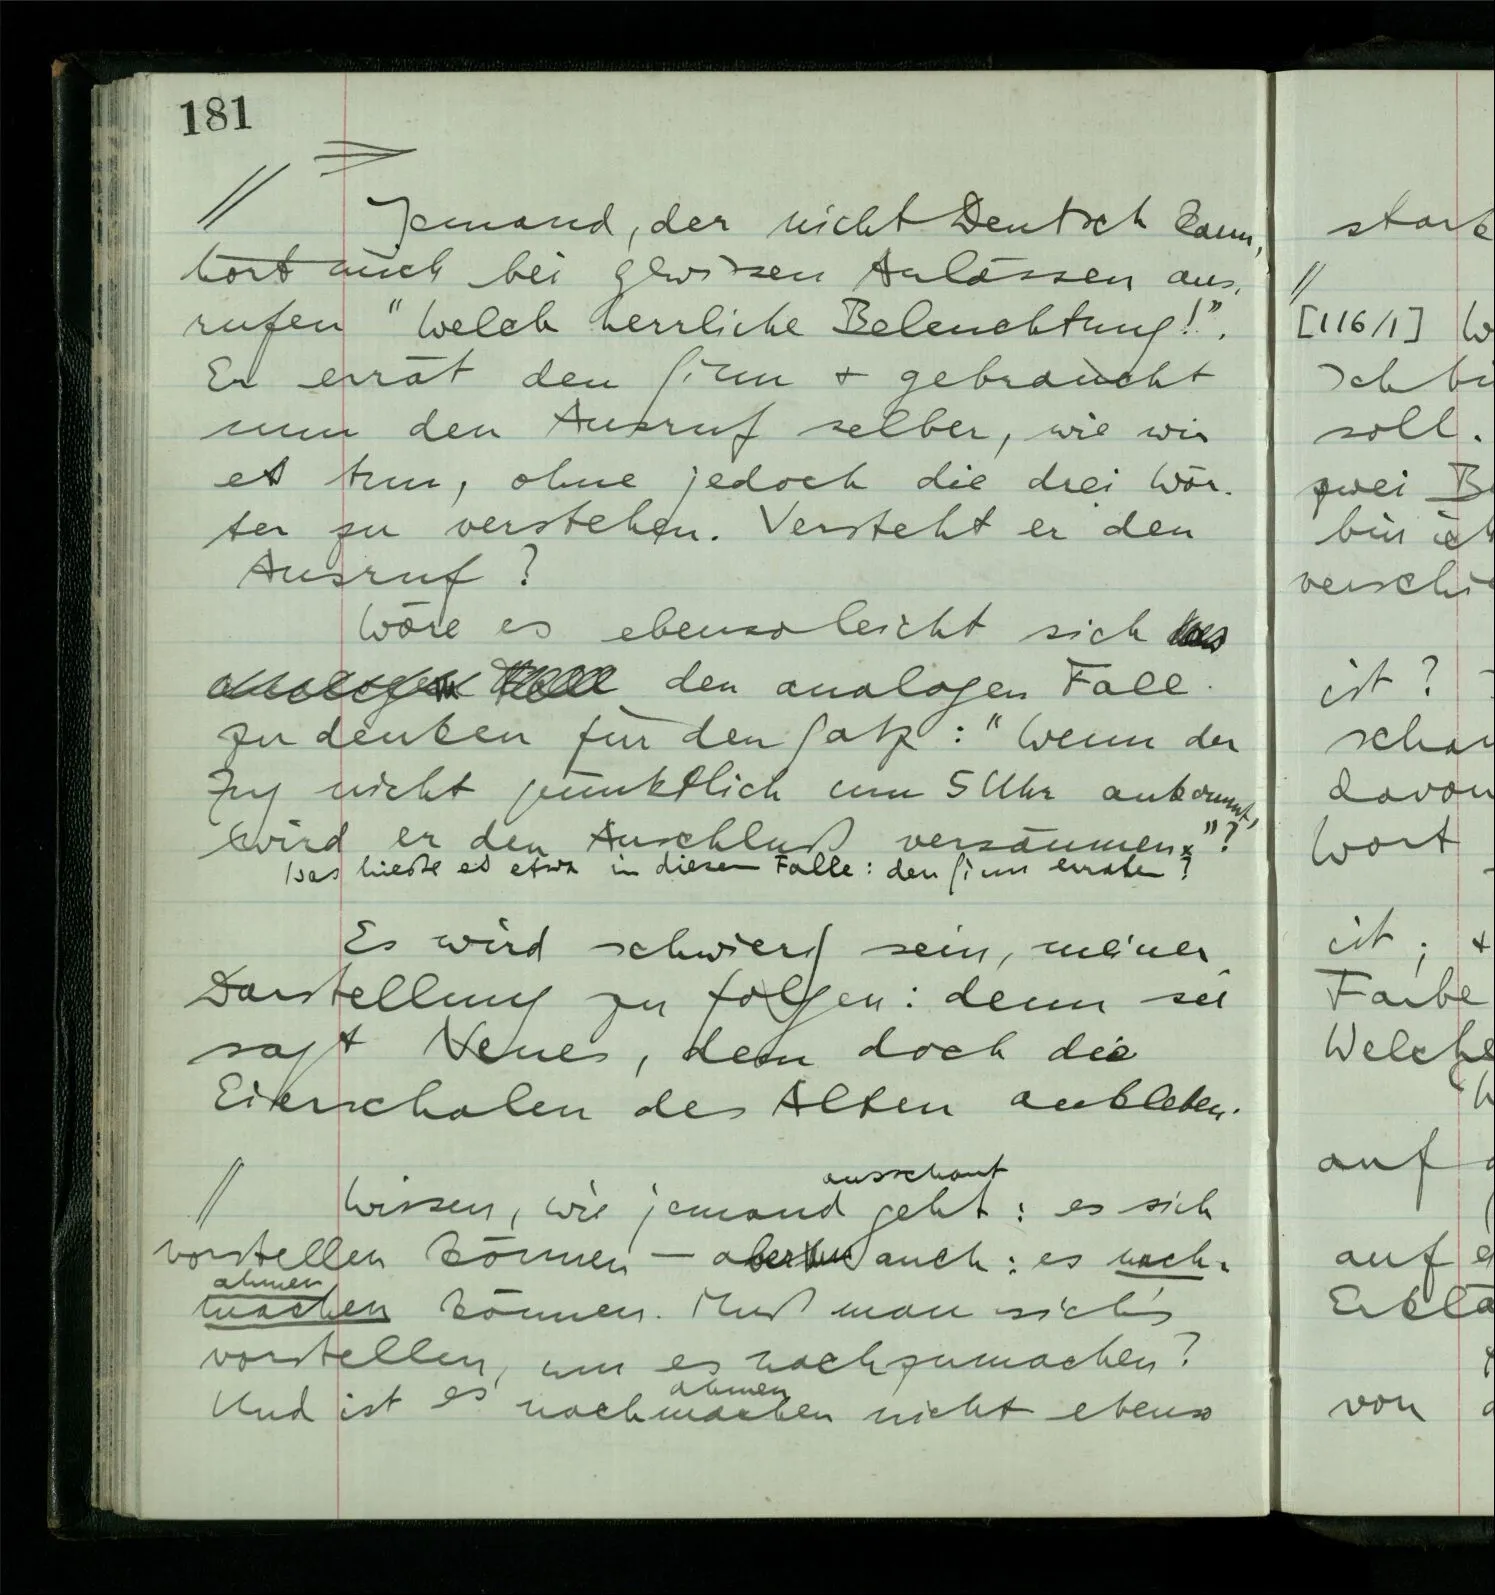 181
// Jemand, der nicht Deutsch kann,
hört mich bei gewissen Anlässen aus-
rufen "Welch herrliche Beleuchtung!".
Er errät den Sinn + gebraucht
nun den Ausruf selber, wie wir
es tun, ohne jedoch die drei Wör-
ter zu verstehen. Versteht er den
Ausruf?
Wäre es ebenso leicht sich
den analogen Fall
zu denken für den Satz: "Wenn der
Zug nicht pünktlich um 5 Uhr ankommt,
wird er den Anschluß versäumen"?
Was hieße es etwa in diesem Falle: den Sinn erraten?
Es wird schwierig sein, meiner
Darstellung zu folgen: denn sie
sagt Neues, dem doch die
Eierschalen des Alten ankleben.
ausschaut
// Wissen, wie jemand geht: es sich
vorstellen können — aber auch: es nach-
ahmen
machen können. Muß man sich's
vorstellen, um es nachzumachen?
ahmen
Und ist es nachmachen nicht ebenso
stark
//
[116/1] W
Ich bi
soll.
zwei B
bin ich
verschie
ist?
schau
davon
Wort
ist; +
Farbe
Welche
auf
auf e
Erklä
von